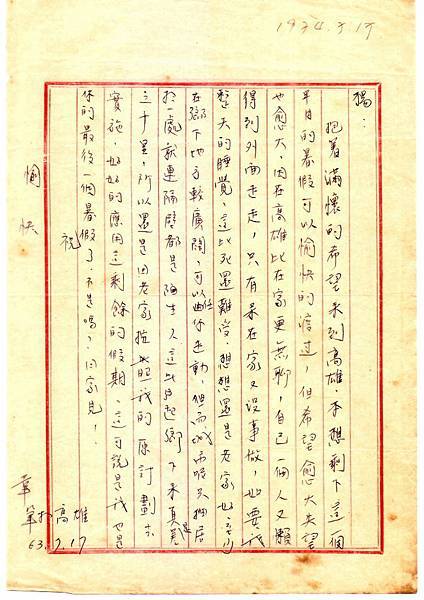 1974.7.17
獨：
抱着滿懷的希望來到高雄,本想剩下這一個
半月的暑假可以愉快的渡過,但希望愈大失望
也愈大,因在高雄比在家更無聊,自己一個人又懶
得到外面走走,只有呆在家又沒事做,如要我
整天的睡覺,這比死還難受,想想還是老家好,
在鄉下地方較廣闊,可以任你走動,但而城市
於一處就連隔壁都是陌生人這比起鄉下來真是
三十里,所以還是回老家按照我的原訂劃去
實施,好好的應用這剩餘的假期,這可說是我也是
你的最後一個暑假了,不是嗎?回家見!
祝
愉快
章
筆於高雄
63.7.17